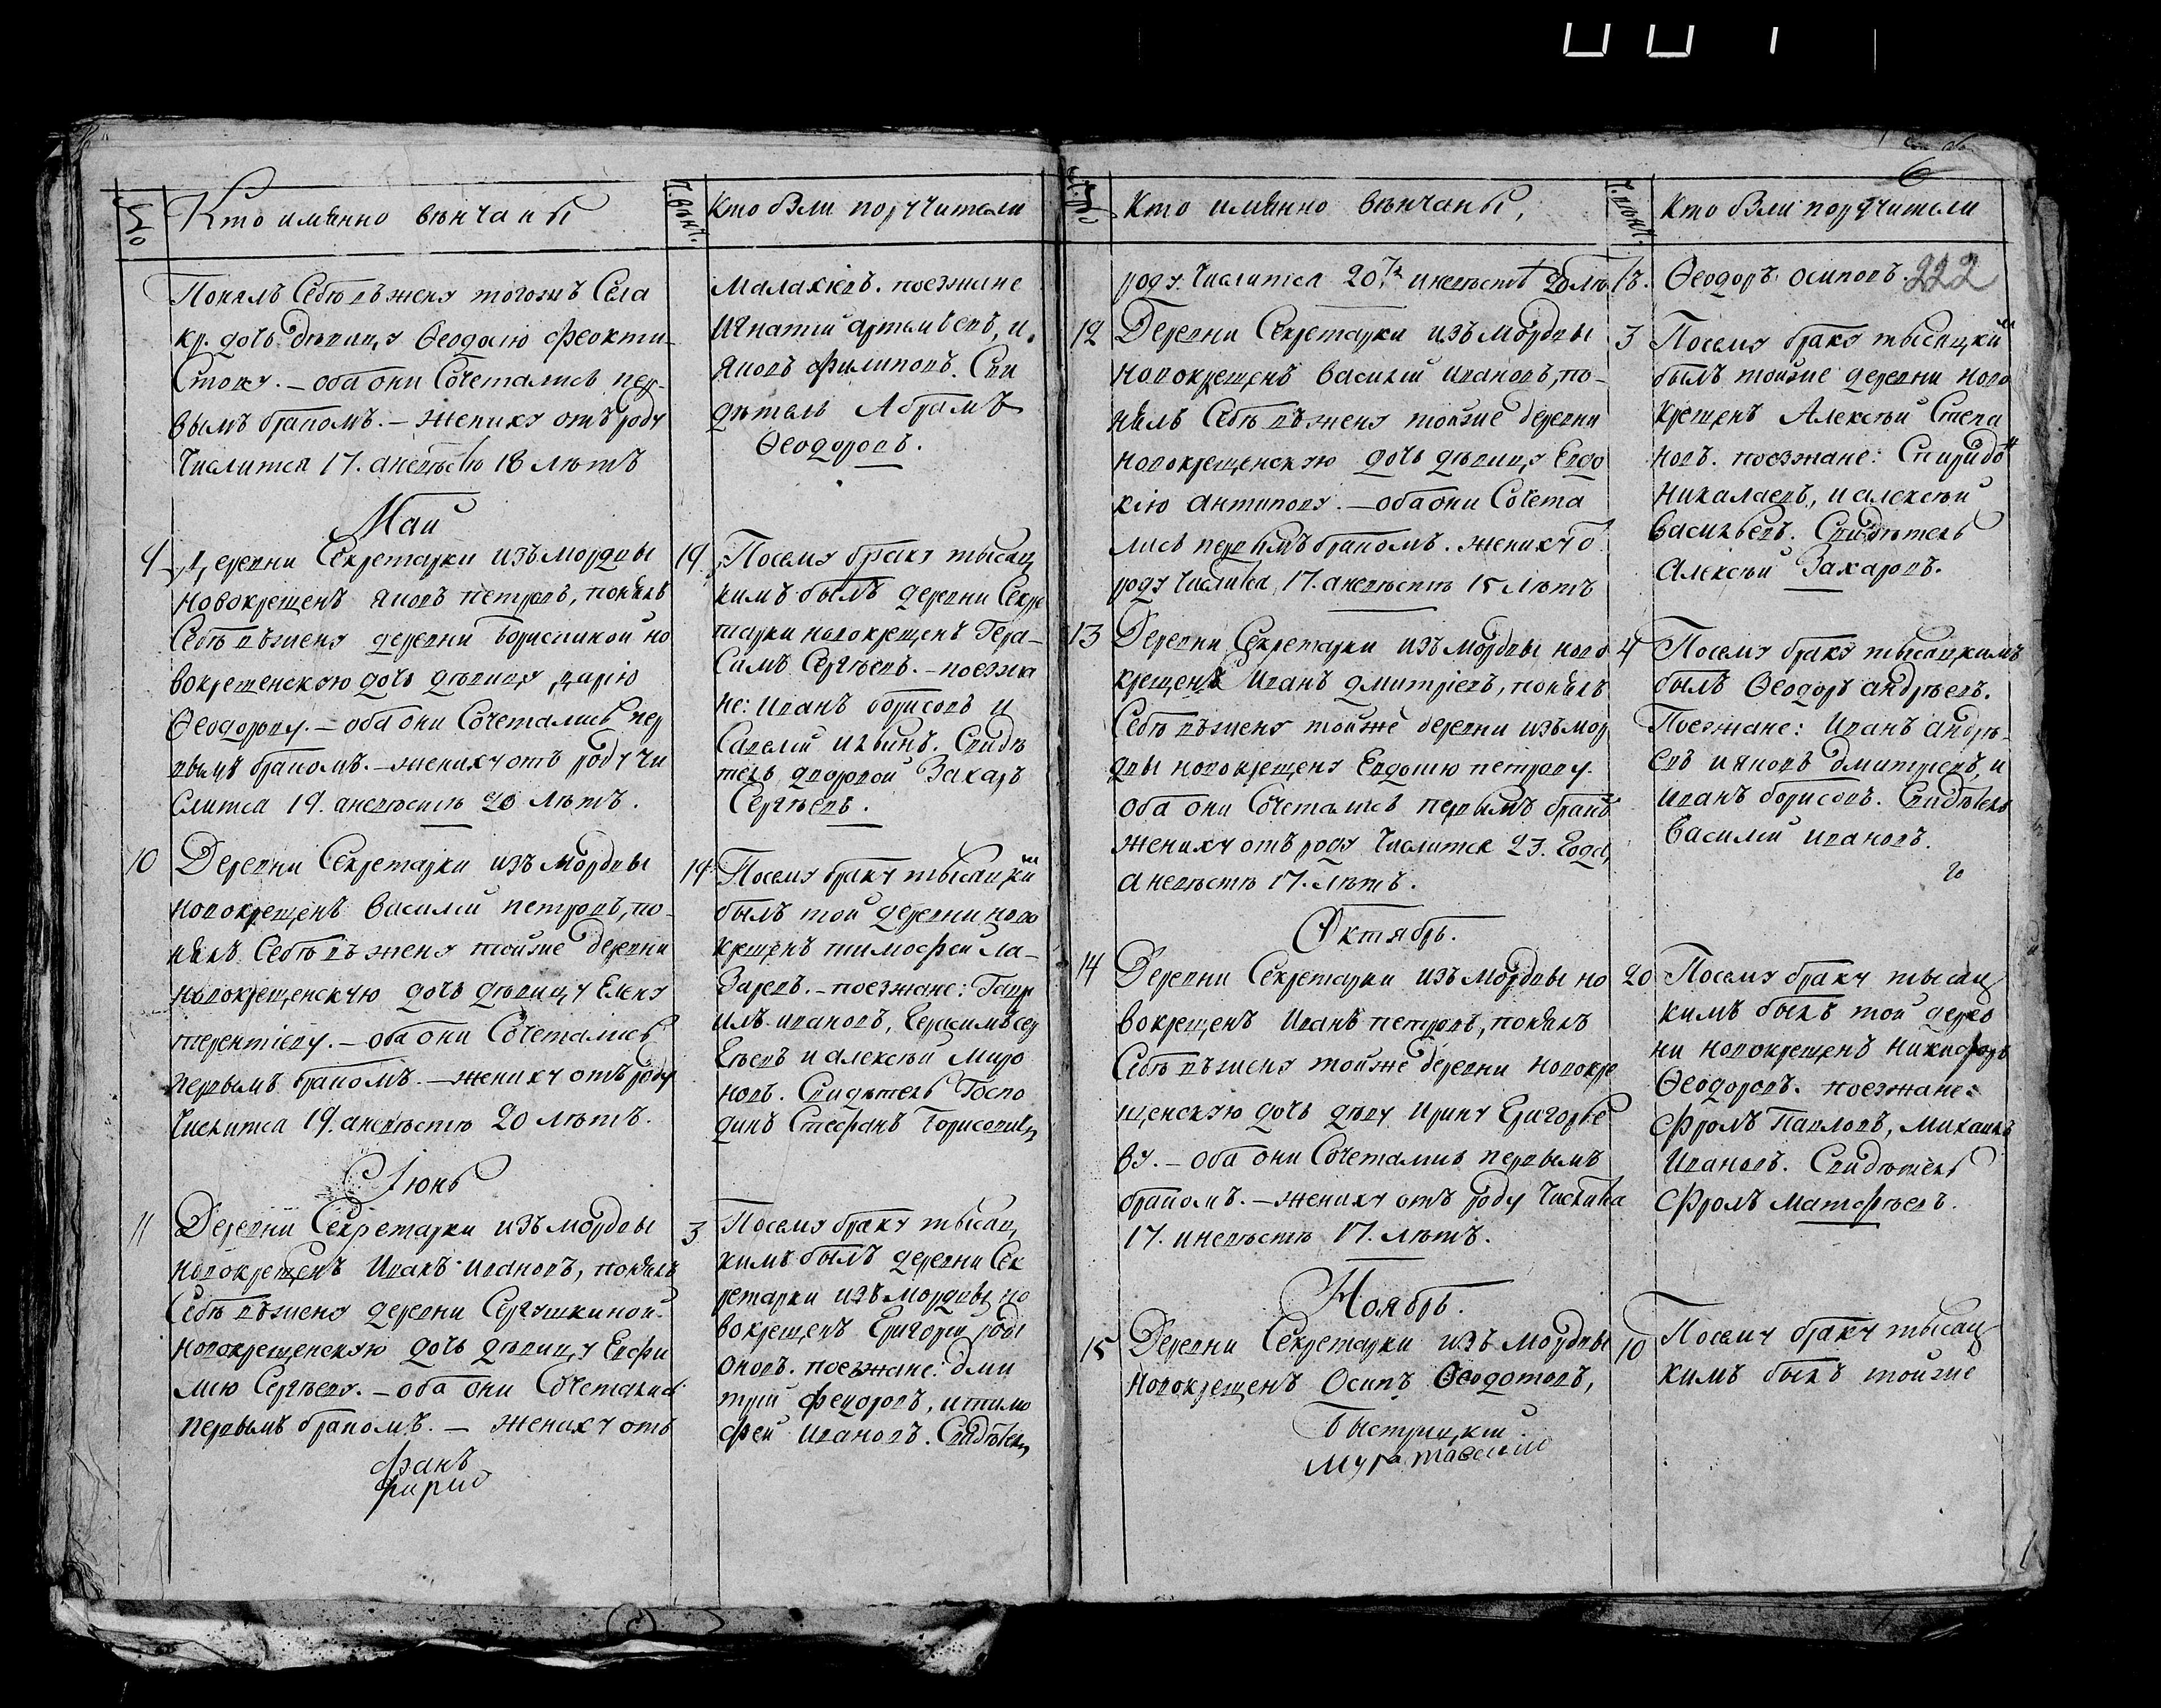 Кто имѧнно вѣнчаны
Ч. вѣнч.
Кто были поручители
Понялъ Себѣ въ жену тогожъ Села
кр. дочь дѣвицу Ѳеодосию Феокти-
стову. — оба они Сочетались пер-
вымъ бракомъ. — жениху отъ роду
Числится 17. а невѣстѣ 18 лѣтъ
Малахіевъ. поезжане
Игнатий артемьевъ, и
Яковъ филиповъ. Сви
дѣтель Абрамъ
Ѳеодоровъ.
Май
9 Деревни Секретарки изъ мордвы
новокрещенъ яковъ петровъ, понялъ
Себѣ въ жену деревни Борискиной но
вокрещенскую дочь дѣвицу дарію
Ѳеодорову. — оба они Сочетались пер
вымъ бракомъ. — жениху отъ роду чи
слится 19. а невѣстѣ 20 лѣтъ.
19. По сему браку тысяц
кимъ былъ деревни Секре
тарки новокрещенъ Гера-
симъ Сергѣевъ. — поезжа
не: Иванъ борисовъ и
Савелий Ильинъ. Свидѣ
тель дворовой Захаръ
Сергѣевъ.
10 Деревни Секретарки изъ мордвы
новокрещенъ Василий петровъ, по-
нялъ Себѣ въ жену тойже деревни
новокрещенскую дочь дѣвицу Елену
терентіеву. — оба они Сочетались
первымъ бракомъ. — жениху отъ роду
Числится 19. а невѣстѣ 20 лѣтъ.
19. По сему браку тысяцкий
былъ той деревни ново
крещенъ тимофей Ла-
заревъ. — поезжане: Гавр
илъ ивановъ, Герасимъ сер
гѣевъ и алексѣй миро
новъ. Свидѣтель Госпо
динъ Стефанъ Борисовичъ
Іюнь
11 Деревни Секретарки изъ мордвы
новокрещенъ Иванъ ивановъ, понялъ
Себѣ въ жену деревни Сергушкиной
новокрещенскую дочь дѣвицу Евфи
мию Сергѣеву. — оба они Сочетались
первымъ бракомъ. — жениху отъ
3 По сему браку тысяц
кимъ былъ деревни Сек
ретарки изъ мордвы но
вокрещенъ Григорий роди
оновъ. поезжане: дми
трий федоровъ, и тимо
фей Ивановъ. Свидѣтель
6
Кто имѧнно вѣнчаны,
Ч. вѣнч.
Кто были поручители
роду Числится 20. и невѣстѣ 20 лѣтъ.
Ѳеодоръ осиповъ. 222
12 Деревни Секретарки изъ мордвы
новокрещенъ Василий ивановъ, по-
нялъ Себѣ въ жену тойже деревни
новокрещенскую дочь дѣвицу Евдо
кію антипову. — оба они Сочета
лись первымъ бракомъ. жениху о
роду числится 17. а невѣстѣ 15 лѣтъ
3 По сему браку тысяцкий
былъ тойже деревни ново
крещенъ Алексѣй Степа
новъ. поезжане: Спиридон
Николаевъ, и алексѣй
Васильевъ. Свидѣтель
Алексѣй Захаровъ.
13 Деревни Секретарки изъ мордвы ново
крещенъ Иванъ дмитріевъ, понялъ
Себѣ въ жену тойже деревни изъ мор
двы новокрещену Евдокию петрову.
оба они Сочетались первымъ брако
жениху отъ роду числится 23. года,
а невѣстѣ 17. лѣтъ.
4 По сему браку тысяцкимъ
былъ Ѳеодоръ андрѣевъ.
Поезжане: Иванъ андрѣ-
евъ и яковъ дмитриевъ, и
Иванъ борисовъ. Свидѣтель
Василий ивановъ.
Октябрь.
14 Деревни Секретарки изъ мордвы но
вокрещенъ Иванъ петровъ, понялъ
Себѣ въ жену тойже деревни новокре
щенскую дочь дѣву Ирину Григорье
ву. — оба они Сочетались первымъ
бракомъ. — жениху отъ роду числится
17. и невѣстѣ 17. лѣтъ.
20 По сему браку тысяц
кимъ былъ той дерев
ни новокрещенъ Никифоръ
Ѳеодоровъ. поезжане:
Фролъ Павловъ, Михаилъ
Ивановъ. Свидѣтель
Фролъ Матфѣевъ.
Ноябрь.
15 Деревни Секретарки изъ мордвы
новокрещенъ Осипъ Ѳеодотовъ,
10 По сему браку тысяц
кимъ былъ тойже